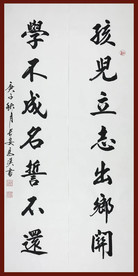 孩兒立志出鄉關
學不成名誓不還
庚子秋月